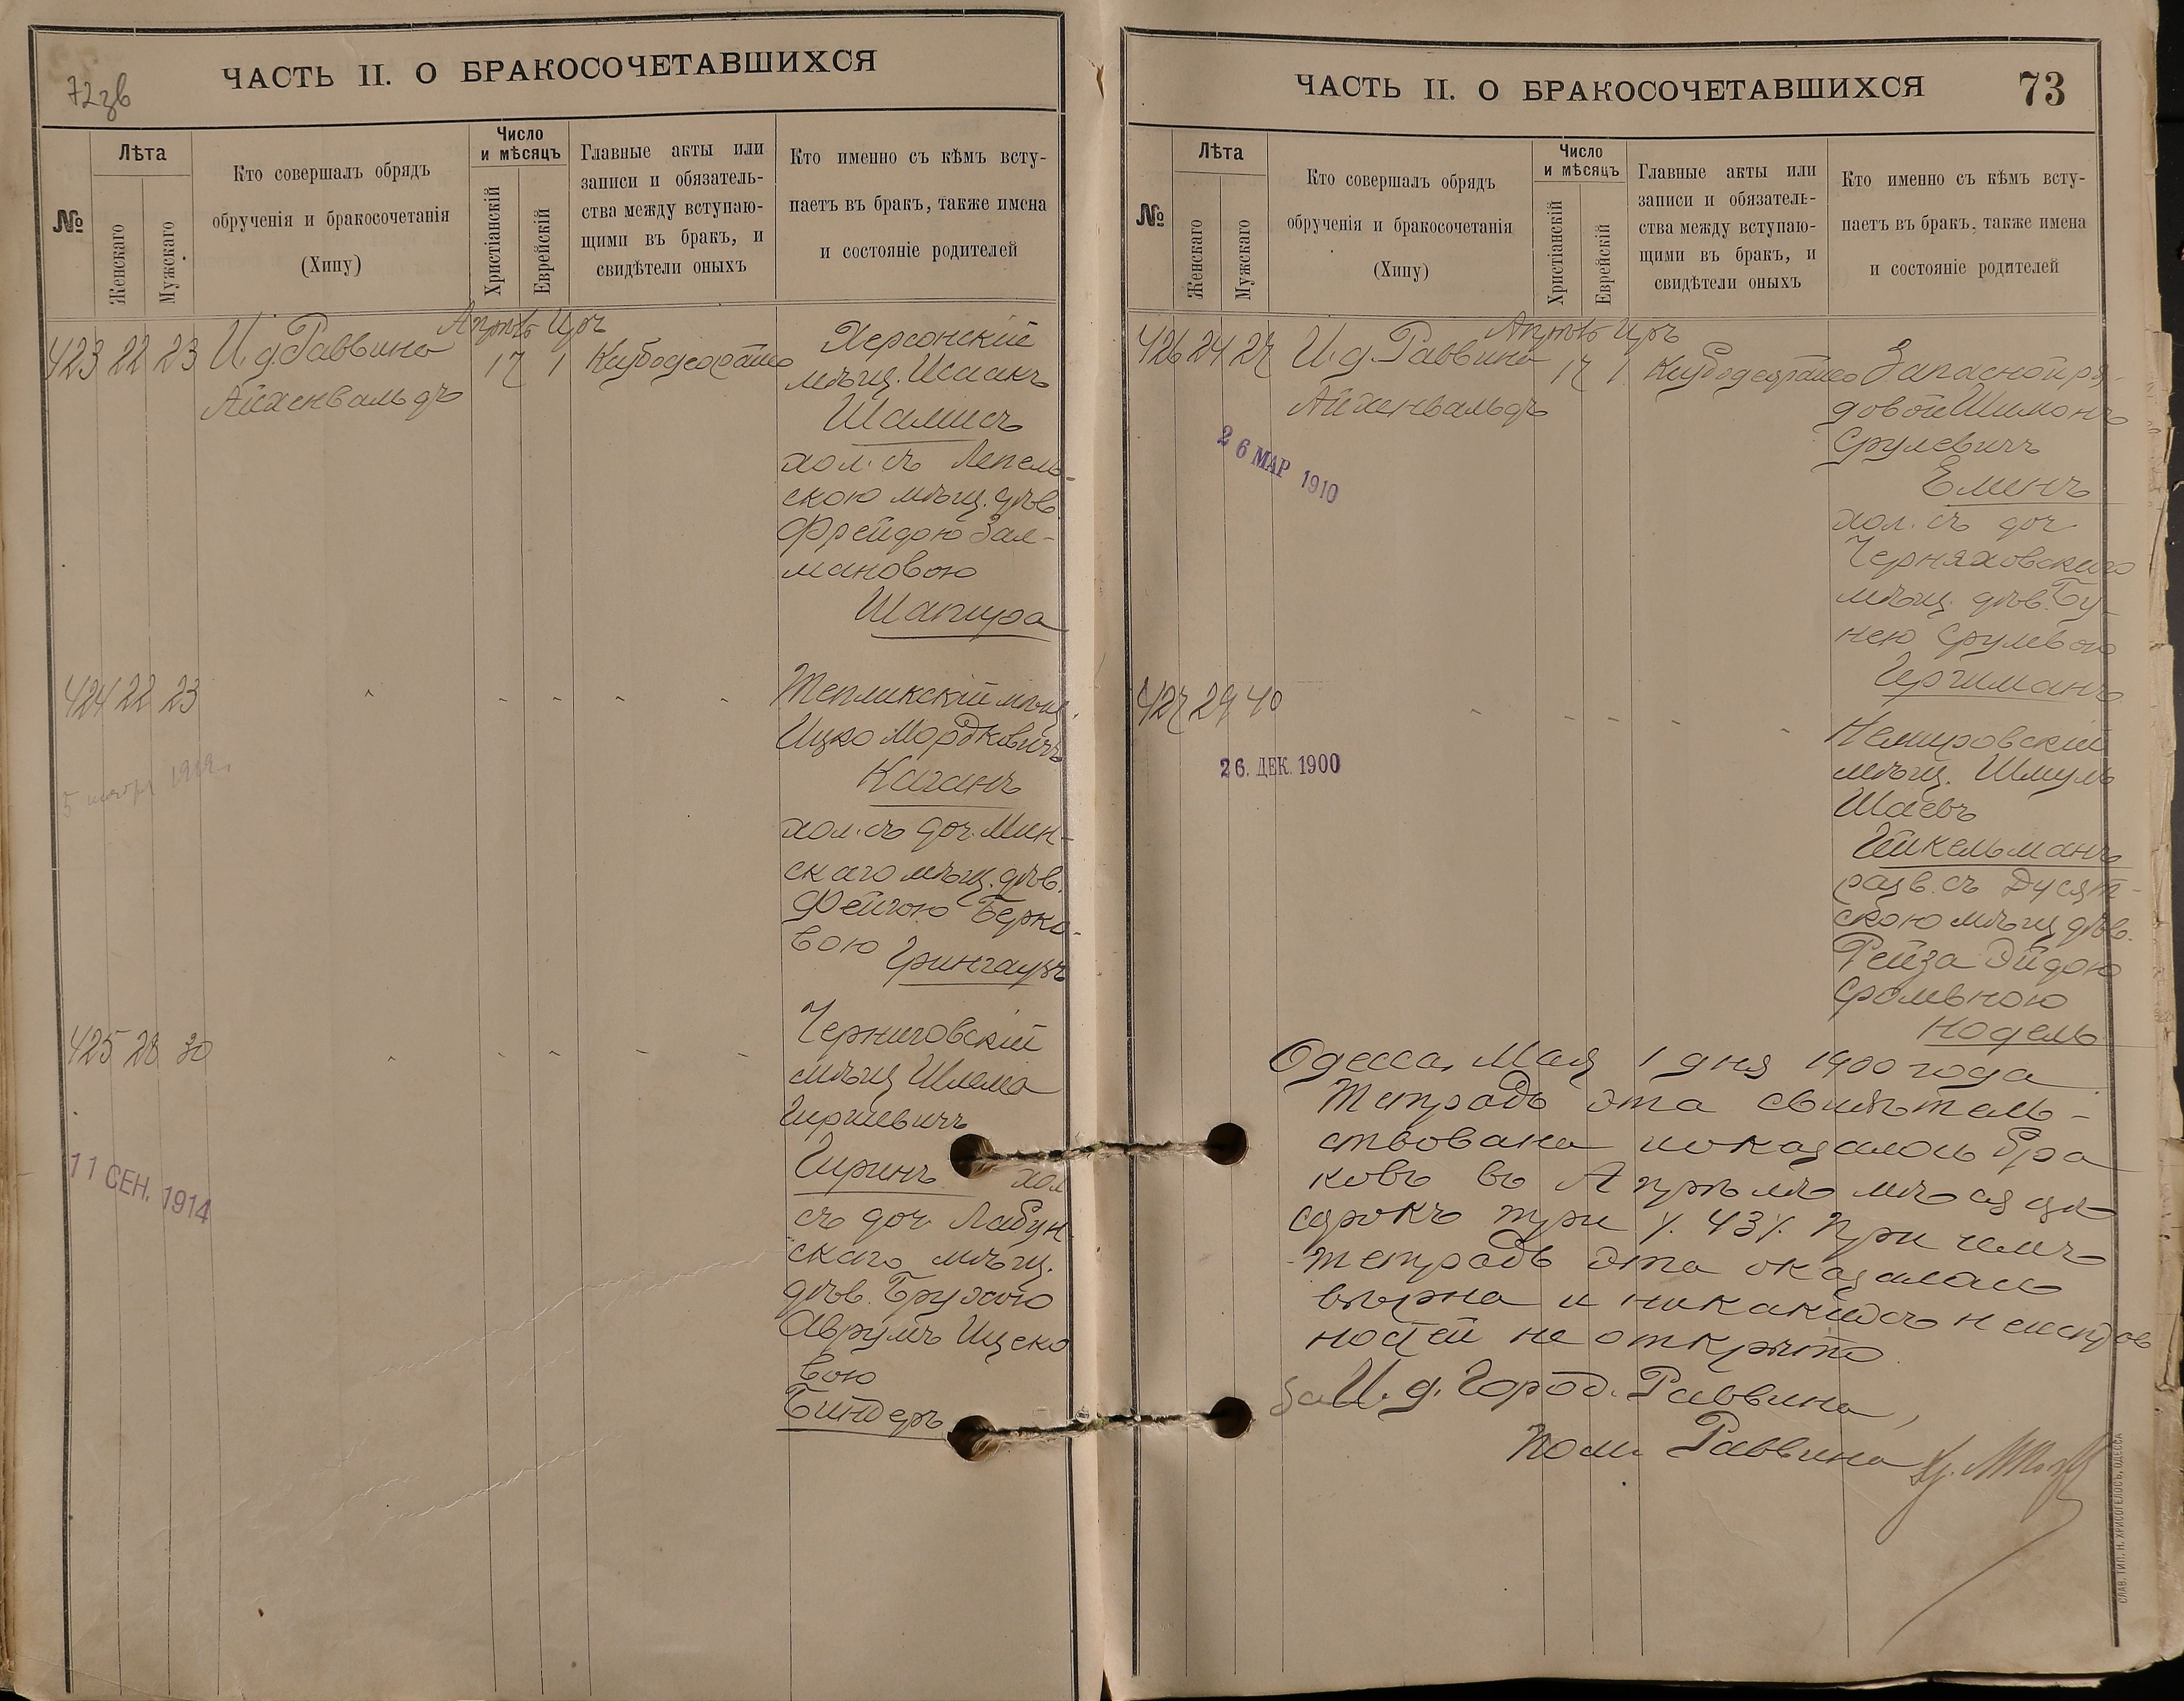 72зв
ЧАСТЬ II. О БРАКОСОЧЕТАВШИХСЯ
№
Лѣта
Женскаго
Мужскаго
Кто совершалъ обрядъ
обрученія и бракосочетанія
(Хипу)
Число
и мѣсяцъ
Христіанскій
Еврейскій
Главные акты или
записи и обязатель-
ства между вступаю-
щими въ бракъ, и
свидѣтели оныхъ
Кто именно съ кѣмъ всту-
паетъ въ бракъ, также имена
и состояніе родителей
423 22 23 И. д. Раввина
Айхенвальдъ
Апрѣль Иръ
17 1
Херсонскій
мѣщ. Исаакъ
Шамисъ
хол. съ Лепель-
скою мѣщ. дѣв.
Фрейдою Зал-
мановою
Шапира
424 22 23 " - - - -
Тепликскій мѣщ.
Ицко Мордковичъ
Каганъ
хол. съ доч. Мин-
скаго мѣщ. дѣв.
Фейгою Берко-
вою Грингаузъ
5 1912.
425 28 30 " - - - -
Черниговскій
мѣщ Шлема
Гиршевичъ
Гиринъ хол
съ доч. Лабун
скаго мѣщ.
дѣв. Брухою
Аврумъ Ицко
вою
Биндеръ
11 СЕН. 1914
ЧАСТЬ II. О БРАКОСОЧЕТАВШИХСЯ
73
№
Лѣта
Женскаго
Мужскаго
Кто совершалъ обрядъ
обрученія и бракосочетанія
(Хипу)
Число
и мѣсяцъ
Христіанскій
Еврейскій
Главные акты или
записи и обязатель-
ства между вступаю-
щими въ бракъ, и
свидѣтели оныхъ
Кто именно съ кѣмъ всту-
паетъ въ бракъ, также имена
и состояніе родителей
426 24 27 И. д. Раввина
Айхенвальдъ
Апрѣль Иръ
17 1
26 МАР 1910
Запасной ря-
довой Шимонъ
Срулевичъ
Еминъ
хол. съ доч
Черняховскаго
мѣщ. дѣв. Бу-
нею Срулевою
427 29 40 - - - - -
26. ДЕК. 1900
Немировскій
мѣщ. Шмуль
Шаевъ
Гейкельманъ
разв. съ Дусят-
скою мѣщ дѣв.
Рейза Эйдою
Сролевною
Нодель
Одесса, Мая 1 дня 1900 года
Тетрадь эта свидѣтель-
ствована и оказалось бра
ковъ въ Апрѣлѣ мѣсяцѣ
сорокъ три /. 43/. При чемъ
тетрадь эта оказалась
вѣрна и никакихъ неисправ
ностей не открыто
За И. д. Город. Раввина,
Пом. Раввина
СЛАВ. ТИП. Н. ХРИСОГЕЛОСЪ, ОДЕССА